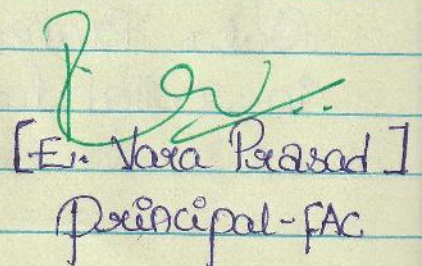 [E. Vara Prasad]
Principal-FAC